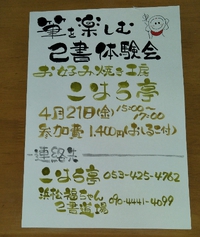 筆を楽しむ
己書体験会
お好み焼き工房
こはち亭
4月21日(金) 15:00〜17:00
参加費 1,400円(おしるこ付)
連絡先
こはち亭 053-425-4762
浜松福ちゃん 090-4441-4099
己書道場